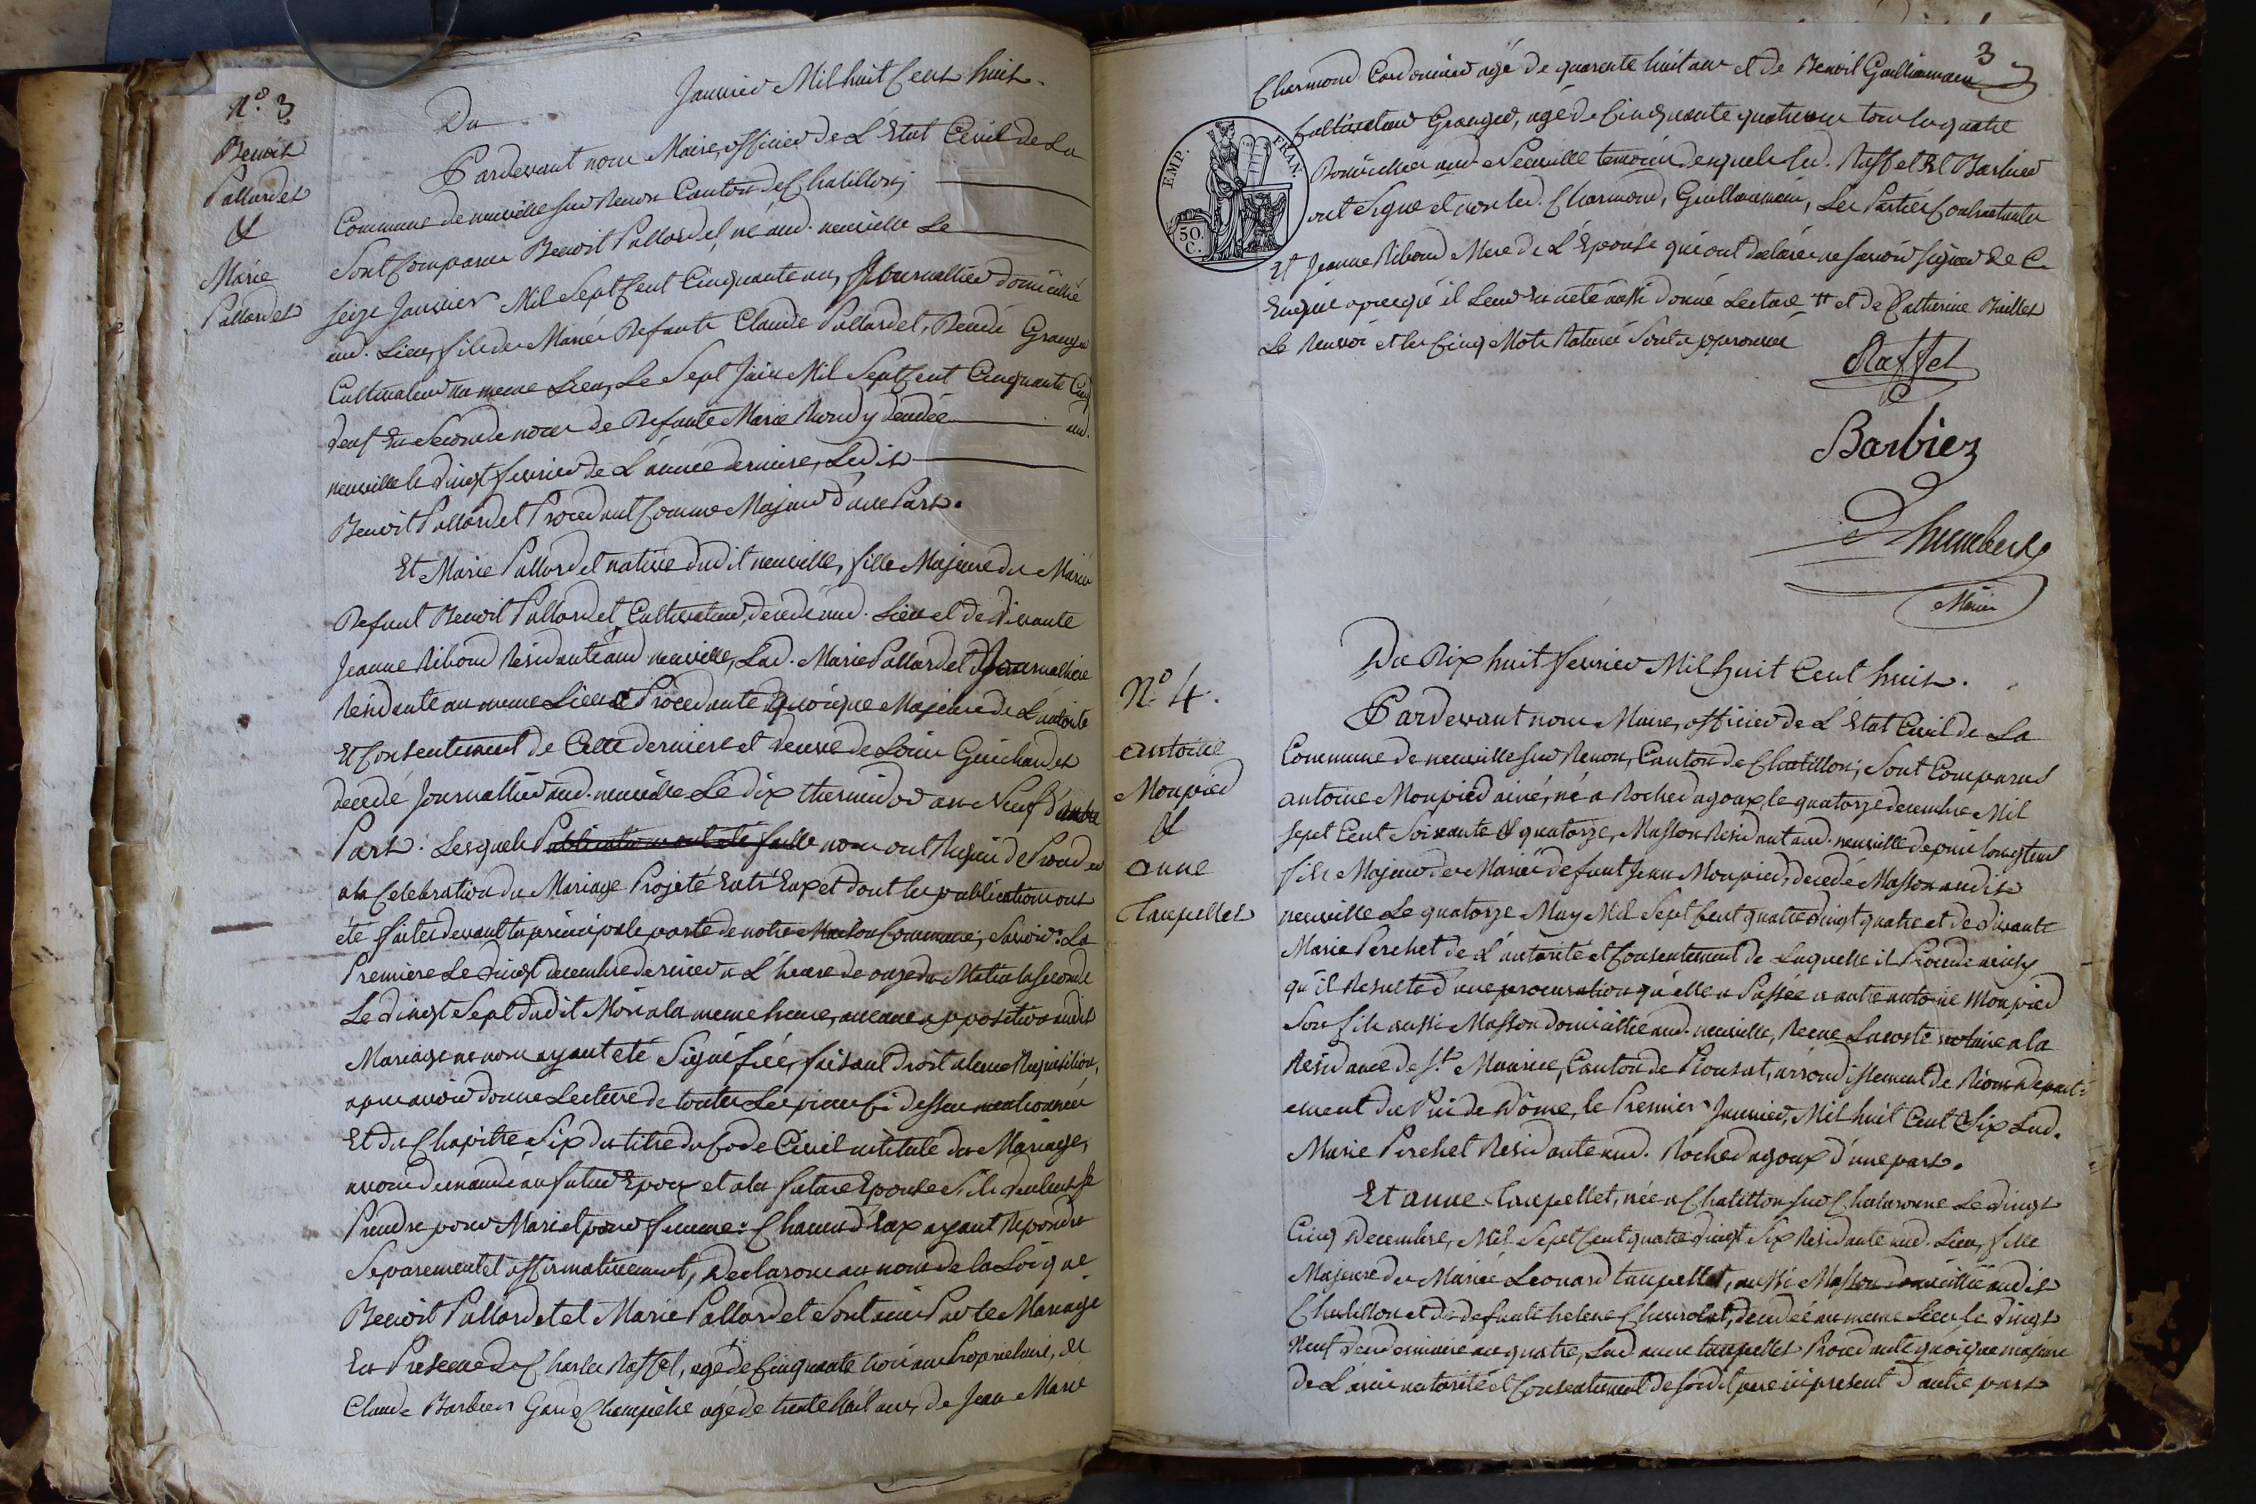 N.º 3
Benoit
Pallardet
&
Marie
Pallardet
Du Janvier Mil huit Cent huit.
Pardevant nous Maire, officier de L'Etat Civil de La
Commune de neuville sur Renon Canton de Chatillon;
Sont Comparus Benoit Pallardet, né aud. neuville Le
seize Janvier Mil Sept Cent Cinquante un, Journallier domicillié
aud. Lieu, fils des Mariés Defunts Claude Pallardet, Granger
Cultivateur au meme Lieu, Le Sept Juin Mil Sept Cent Cinquante Cinq
veuf En Seconde noces de Defunte Marie décédée aud.
neuville le vingt fevrier de L'année derniere, Ledit
Benoit Pallardet Procedant Comme Majeur d'une Part.
Et Marie Pallardet native dudit neuville, fille Majeure des Mariés
Defunt Benoit Pallardet, Cultivateur, décédé aud. Lieu et de vivante
Jeanne Riboud Residante aud neuville, Lad. Marie Pallardet Journalliere
Residante au meme Lieu & Procedante quoique Majeure de L'autorité
Et Consentement de Cette derniere et veuve de Louis Guichardet
décédé Journallier aud. neuville Le dix thermidor an Neuf d'autre
Part. Lesquels Publications ont été faite nous ont Requis de Proceder
a la Celebration du Mariage Projeté Entr'Eux et dont les publications ont
été faites devant la principale porte de notre Maison Commune; Savoir: La
Premiere Le vingt decembre dernier a L'heure de onze du Matin la Seconde
Le vingt Sept dudit Mois a la meme heure, aucune opposition audit
Mariage ne nous ayant été Signifiée, faisant droit a leur Requisition,
apres avoir donné Lecture de toutes Les pieces Ci dessus mentionnées
Et du Chapitre Six du titre du Code Civil intitulé du Mariage,
avons demandé au futur Epoux et a la future Epouse S'ils veulent se
Prendre pour Mari et pour femme: Chacun d'Eux ayant Repondu
Separement et affirmativement, Declarons au nom de la Loi que
Benoit Pallardet et Marie Pallardet Sont unis Par le Mariage
En Presence de Charles Raffet, agé de Cinquante trois ans Proprietaire, de
Claude Barbier Garde Champêtre agé de trente huit ans, de Jean Marie
3
Charmond Cordonnier agé de quarente huit ans et de Benoit Guillaumain
Cultivateur Granger, agé de Cinquante quatre ans tous les quatre
Domicilliés aud. Neuville temoins desquels led. Raffet Et Barbier
ont Signé et non led. Charmond, Guillaumain, Les Parties Contractantes
Et Jeanne Riboud Mere de L'Epouse qui ont declaré ne savoir signer de Ce
Enquis apres qu'il Leur En a été aussi donné Lecture # et de Catherine Buillet
Le Renvoi et les Cinq Mots Raturés Sont approuvés
EMP. FRAN.
50.
C.
Raffet
Barbier
Dhumbert
Maire
N.º 4.
antoine
Monpied
&
anne
Taupellet
Du Dix huit fevrier Mil huit Cent huit.
Pardevant nous Maire, officier de L'Etat Civil de La
Commune de neuville sur Renon, Canton de Chatillon; Sont Comparus
antoine Monpied ainé, né a Roche dagoux, le quatorze decembre Mil
Sept Cent Soixante & quatorze, Masson Residant aud. neuville depuis longtems
fils Majeur des Mariés defunt Jean Monpied, décédé Masson audit
neuville Le quatorze May Mil Sept Cent quatre vingt quatre et de vivante
Marie Perchet de L'autorité et Consentement de Laquelle il Procede ainsy
qu'il Resulte d'une procuration qu'elle a Passée a autre antoine Monpied
Son fils aussi Masson domicillié aud. neuville, Recue Lacoste notaire a la
Residance de S.t Maurice, Canton de Pionsat, arrondissement de Riom Departe=
ement du Pui de Dôme, le Premier Janvier, Mil huit Cent Six Lad.
Marie Perchet Residante aud. Roche dagoux d'une part.
Et anne Taupellet, née a Chatillon sur Chalaronne Le vingt
Cinq Decembre, Mil Sept Cent quatre vingt Six Residante aud. Lieu, fille
Majeure des Mariés Leonard taupellet, aussi Masson domicillié audit
Chatillon et de defunte helene Chavrolat, décédée au meme Lieu le vingt
Neuf vendemiaire an quatre, Lad. anne taupellet Procedante quoique majeure
de L'avis autorité et Consentement de sondit pere ici present d'autre part